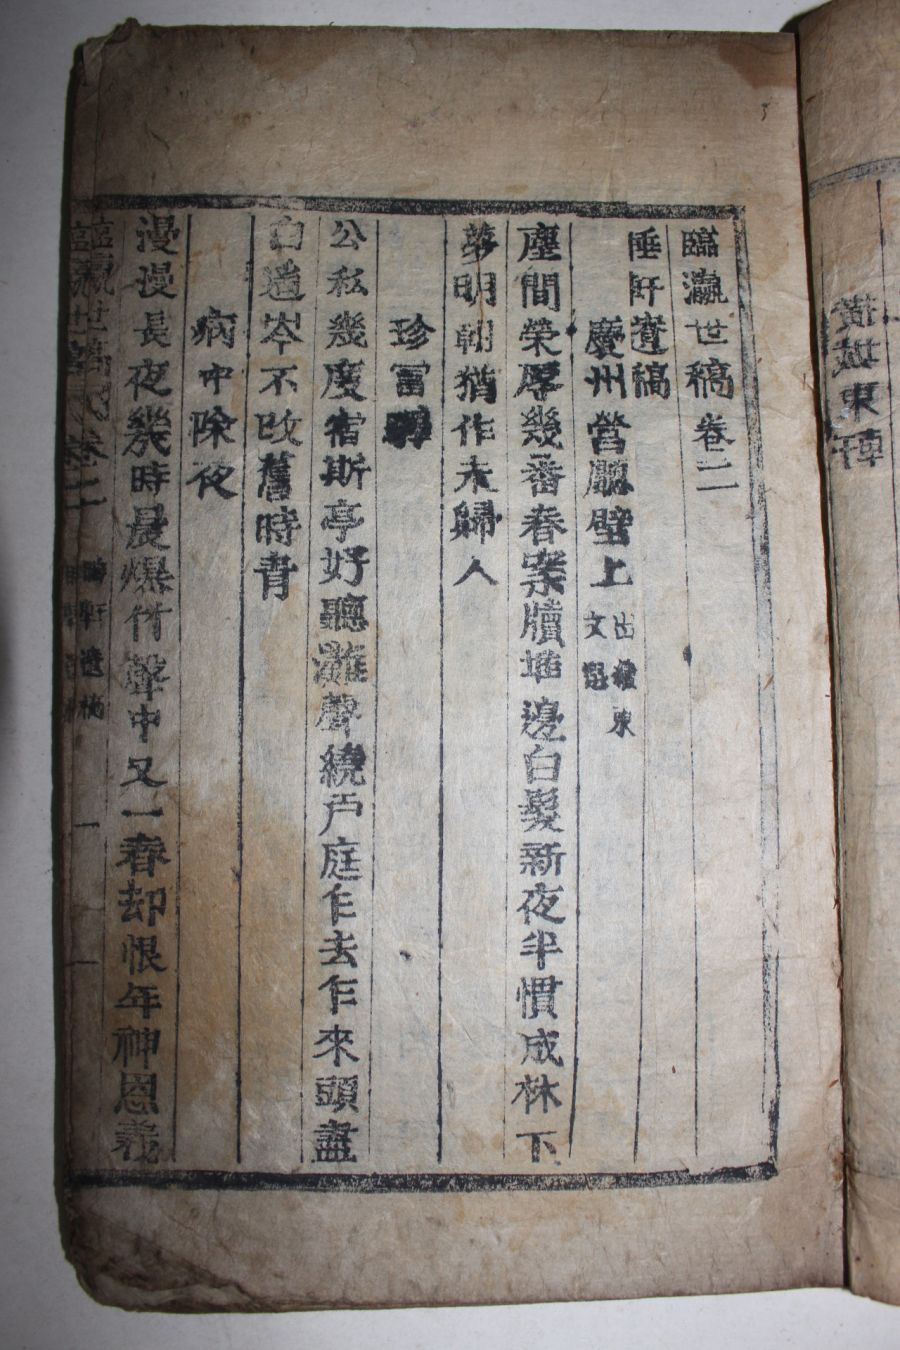 臨瀛世稿卷二
睡軒遺稿
慶州營廳壁上 出權東文選
塵間榮厚幾番春案牘堆邊白髮新夜半慣成林下
夢明朝猶作未歸人
珍富
公私幾度宿斯亭好聽灘聲繞戶庭乍去乍來頭盡
白遒岑不改舊時青
病中除夜
漫漫長夜幾時晨爆竹聲中又一春却恨年神恩義
臨瀛世稿 卷二 睡軒遺稿 一